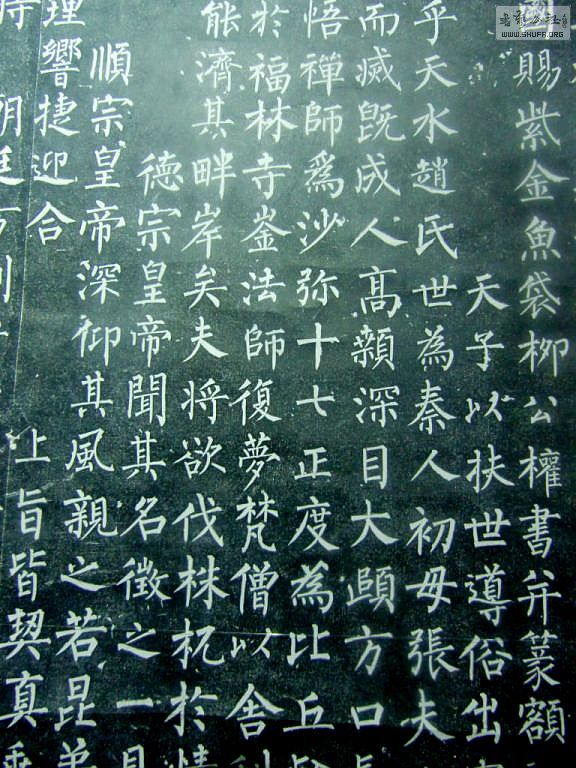 國賜紫金魚袋柳公權書并篆額
天子以扶世導俗出
乎天水趙氏世為秦人初母張夫
而滅既成人高顙深目大頤方口
悟禪師爲沙弥十七正度為比丘
於福林寺崟法師復夢梵僧以舎
能濟其畔岸矣夫將欲伐株杌於
德宗皇帝聞其名徵之一
順宗皇帝深仰其風親之若昆
理響捷迎合 上旨皆契真
WWW.SHUFF.ORG